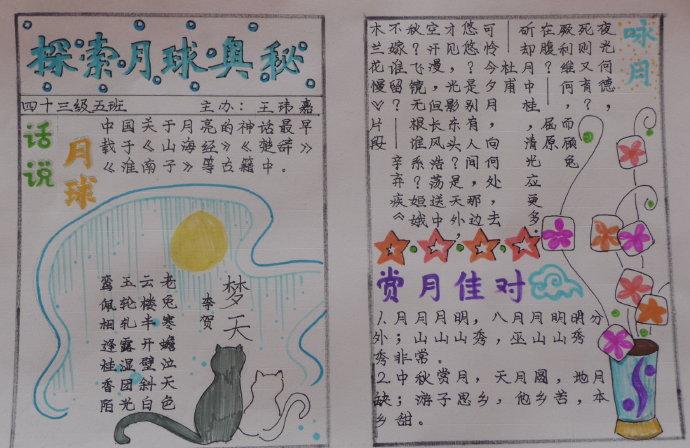 探索月球奥秘
四十三级五班 主办：王玮嘉
话说
月球
中国关于月亮的神话最早
载于《山海经》《楚辞》
《淮南子》等古籍中。
梦天
李贺
老兔寒蟾泣天色
云楼半开壁斜白
玉轮轧露湿团光
鸾佩相逢桂香陌
咏月
夜光何德，
死则又育？
厥利维何，而顾菟
在腹？——屈原
斫却月中桂，清光应更多。
——杜甫
可怜今夕月，向何处，去
悠悠？是别有人间，那边
才见，光影东头？是天外
空汗漫，长风浩荡送中
秋？飞镜无根谁系？姮娥
不嫁谁留？——辛弃疾《
木兰花慢》片段
赏月佳对
1.月月月明，八月月明明分
外；山山山秀，巫山山秀
秀非常。
2.中秋赏月，天月圆，地月
缺；游子思乡，他乡苦，本
乡甜。